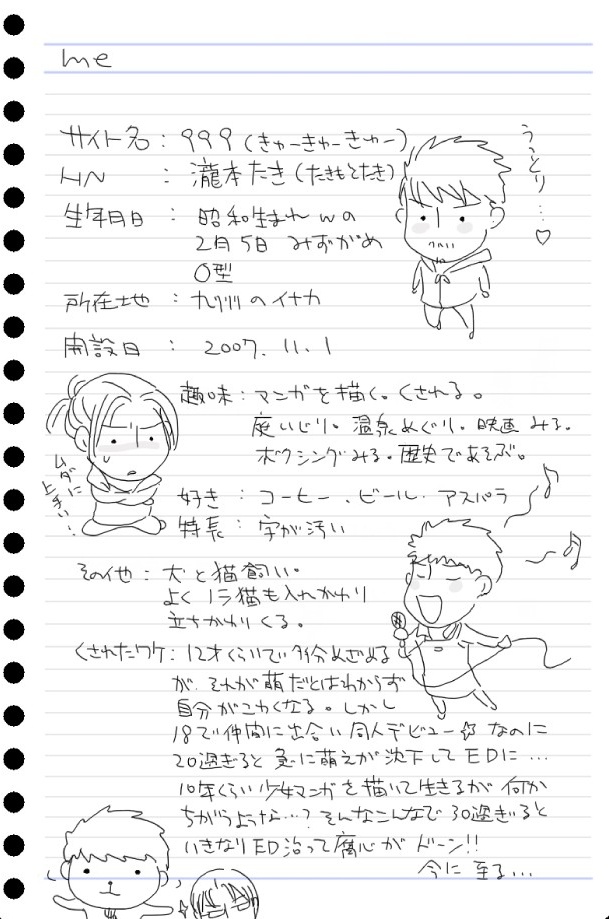 me
サイト名：999（きゅーきゅーきゅー）
HN ：瀧本たき（たきもとたき）
うっとり…♡
生年月日：昭和生まれwの
2月5日 みずがめ
O型
所在地：九州のイナカ
開設日：2007.11.1
趣味：マンガを描く。くされる。
庭いじり。温泉めぐり。映画みる。
ボクシングみる。歴史であそぶ。
ムダに
上手い…
好き：コーヒー、ビール・アスパラ
特長：字が汚い
その他：犬と猫飼い。
よくノラ猫も入れかわり
立ちかわりくる。
くされたワケ：12才くらいで多分めざめる
が、それが萌だとはわからず
自分がこわくなる。しかし
18で仲間に出会い同人デビュー☆なのに
20過ぎると急に萌えが沈下してEDに…
10年くらい少女マンガを描いて生きるが何か
ちがうよーな…？そんなこんなで30過ぎると
いきなりED治って腐心がドーン!!
今に至る…